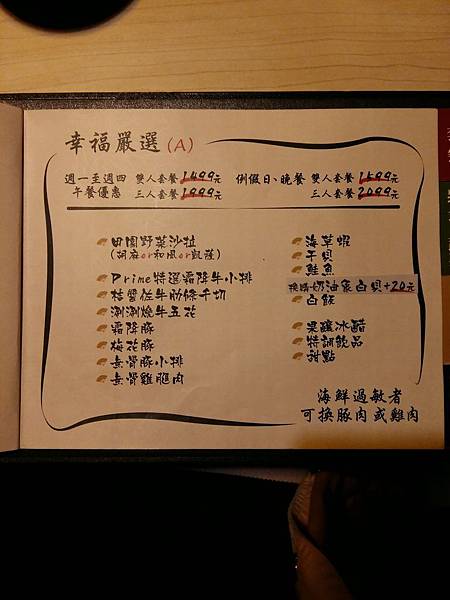 幸福嚴選(A)
週一至週四 雙人套餐1499元
午餐優惠 三人套餐1999元
例假日、晚餐 雙人套餐1599元
三人套餐2099元
田園野菜沙拉
(胡麻or和風or凱薩)
Prime特選霜降牛小排
桔醬佐牛肋條千切
涮涮燒牛五花
霜降豚
梅花豚
無骨豚小排
無骨雞腿肉
海草蝦
干貝
鮭魚
換購奶油象白貝+20元
白飯
果釀冰醋
特調飲品
甜點
海鮮過敏者
可換豚肉或雞肉